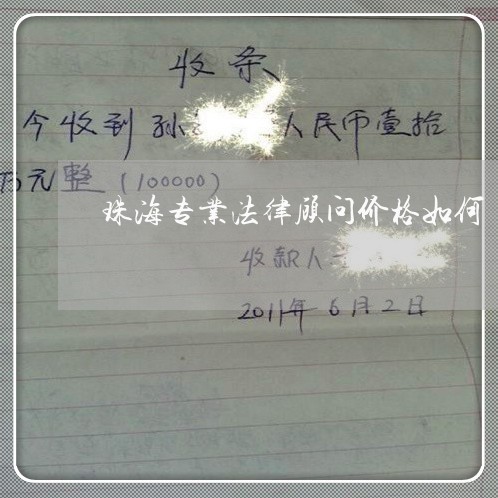 收条
今收到孙 人民币壹拾
万元整(100000)
珠海专業法律顾问价格如何
收款人
2011年6月2日